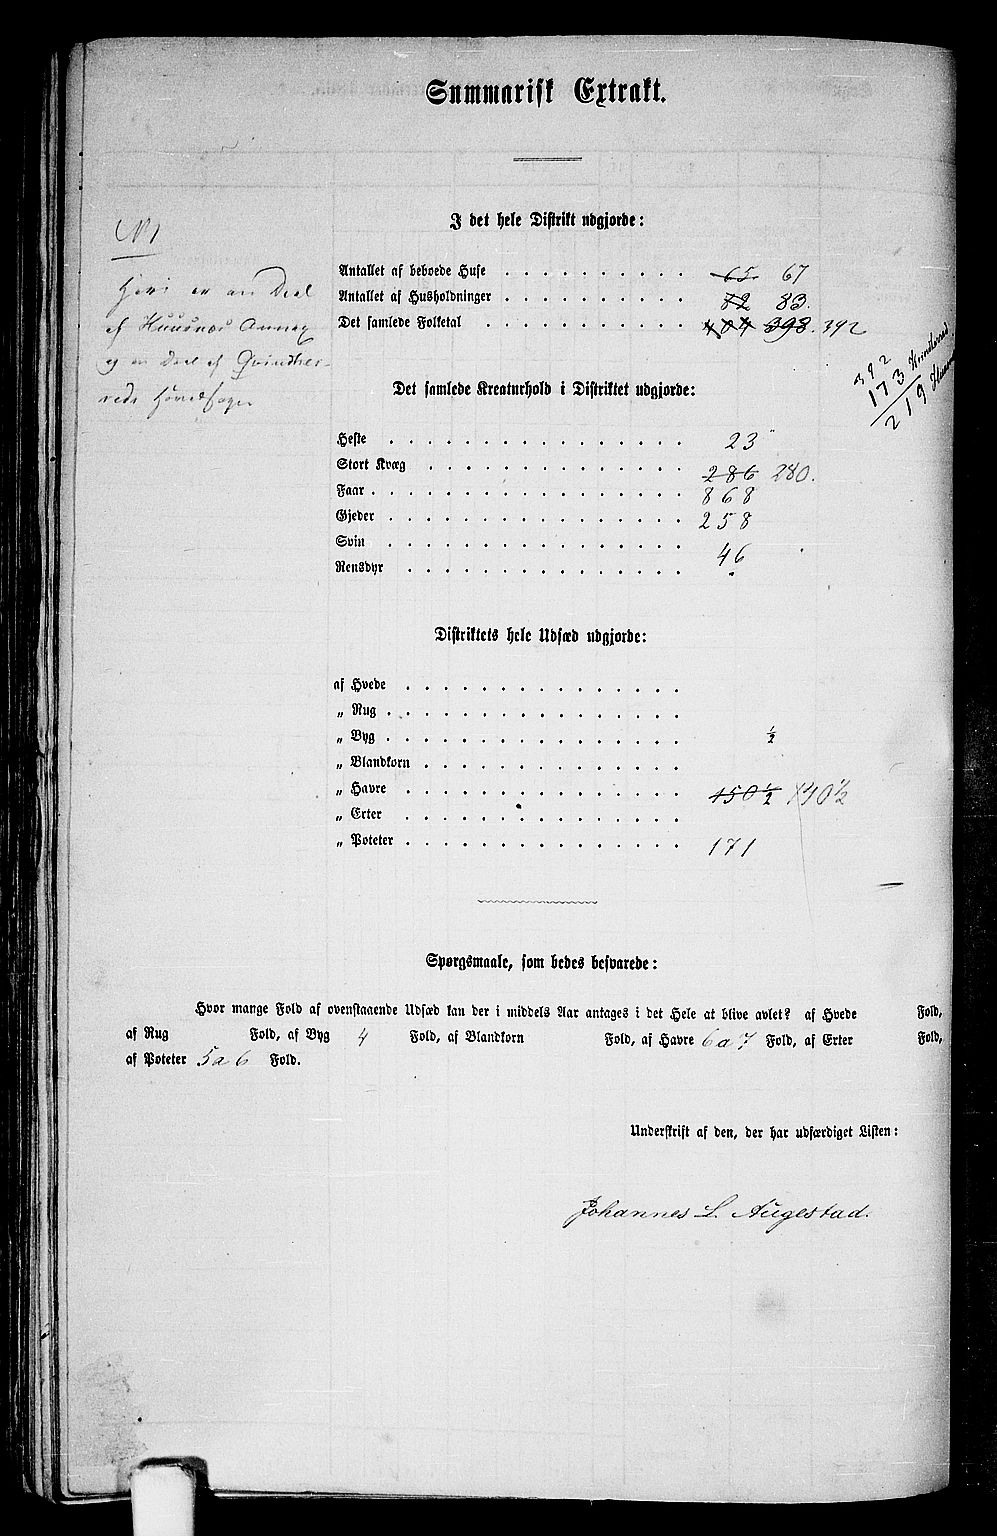 Summarisk Extrakt.
I det hele Distrikt udgjorde:
Antallet af beboede Huse . . . . . . . . 65. 67
Antallet af Husholdninger . . . . . . . . 82 83.
Det samlede Folketal . . . . . . . . 404 398. 392
Heri er en Deel
af Huusnæs Annex
og en Deel af Qvindher-
reds Hovedsogn
392
173 Kvindherred
219
Det samlede Kreaturhold i Distriktet udgjorde:
Heste . . . . . . . . . . . . 23
Stort Kvæg . . . . . . . . . . . 286 280.
Faar . . . . . . . . . . . . . 868
Gjeder . . . . . . . . . . . . 258
Svin . . . . . . . . . . . . 46
Rensdyr . . . . . . . . . . .
Distriktets hele Udsæd udgjorde:
af Hvede . . . . . . . . . . .
„ Rug . . . . . . . . . . . .
„ Byg . . . . . . . . . . . . ½
„ Blandkorn . . . . . . . . . . .
„ Havre . . . . . . . . . . . 150½ 140½
„ Erter . . . . . . . . . . .
„ Poteter . . . . . . . . . . . 171
Spørgsmaale, som bedes besvarede:
Hvor mange Fold af ovenstaaende Udsæd kan der i middels Aar antages i det Hele at blive avlet? af Hvede Fold,
af Rug Fold, af Byg 4 Fold, af Blandkorn Fold, af Havre 6 a 7 Fold, af Erter Fold,
af Poteter 5 a 6 Fold.
Underskrift af den, der har udfærdiget Listen:
Johannes L. Augestad.